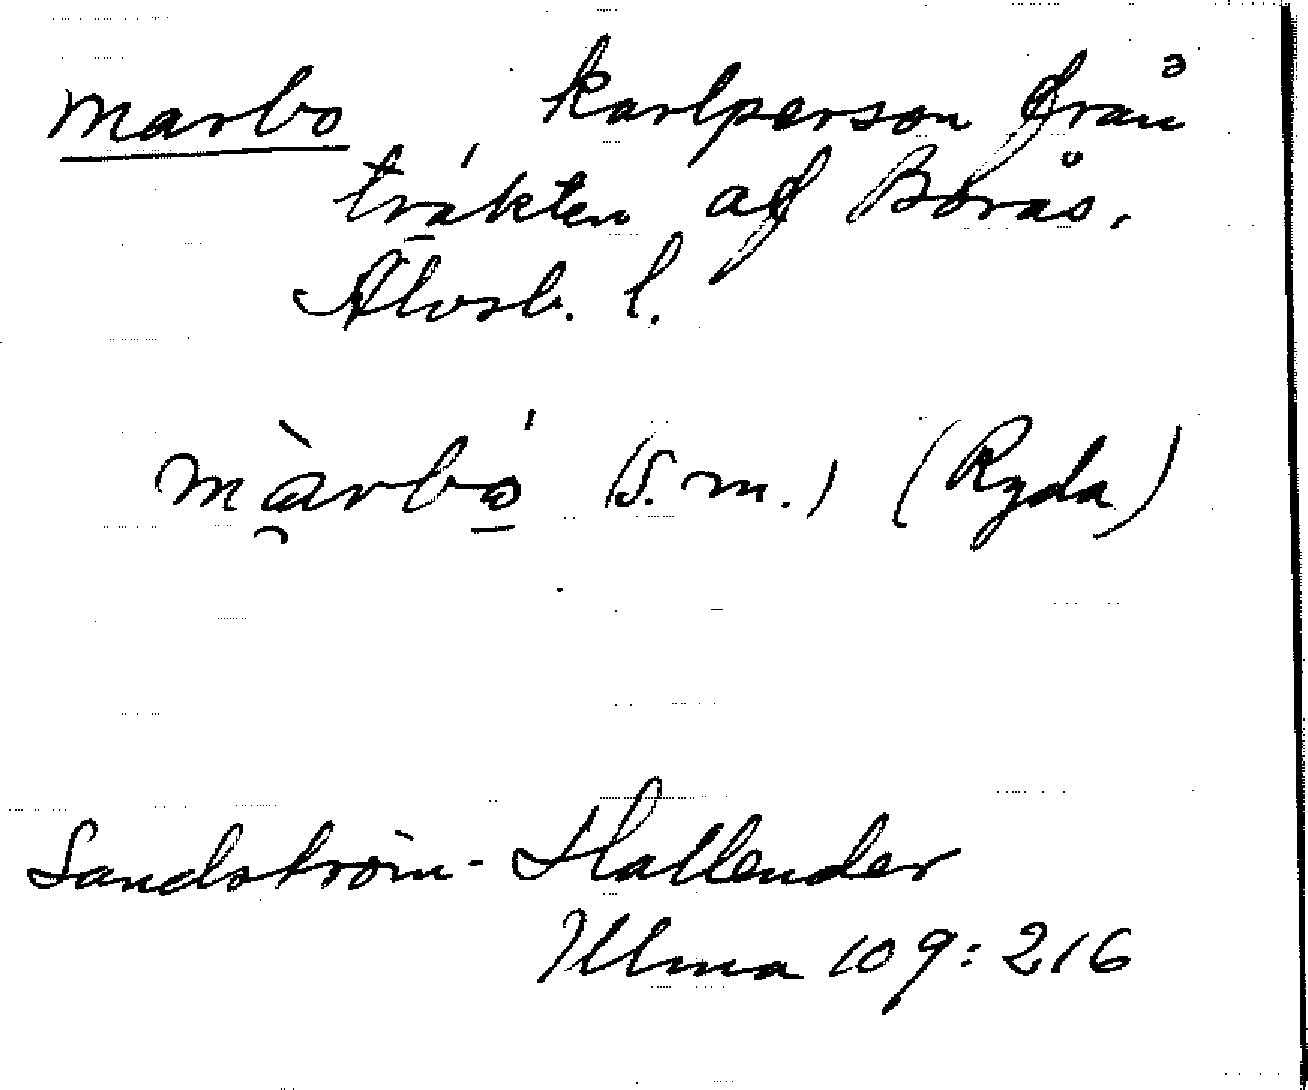 marbo karlperson från
trákten af Borås.
Älvsb. l.
màrbó (s. m.) (Ryda)
Sandström-Hallender
Ulma 109:216